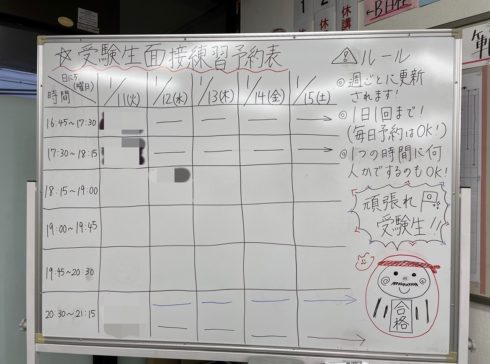 ☆受験生面接練習予約表
⚠ルール
日にち(曜日)
時間
1/11(火)
1/12(水)
1/13(木)
1/14(金)
1/15(土)
16:45~17:30
17:30~18:15
18:15~19:00
19:00~19:45
19:45~20:30
20:30~21:15
◎週ごとに更新
されます!
◎1日1回まで!
(毎日予約はOK!)
◎1つの時間に何
人かでするのもOK!
頑張れ
受験生!!
合格
休講